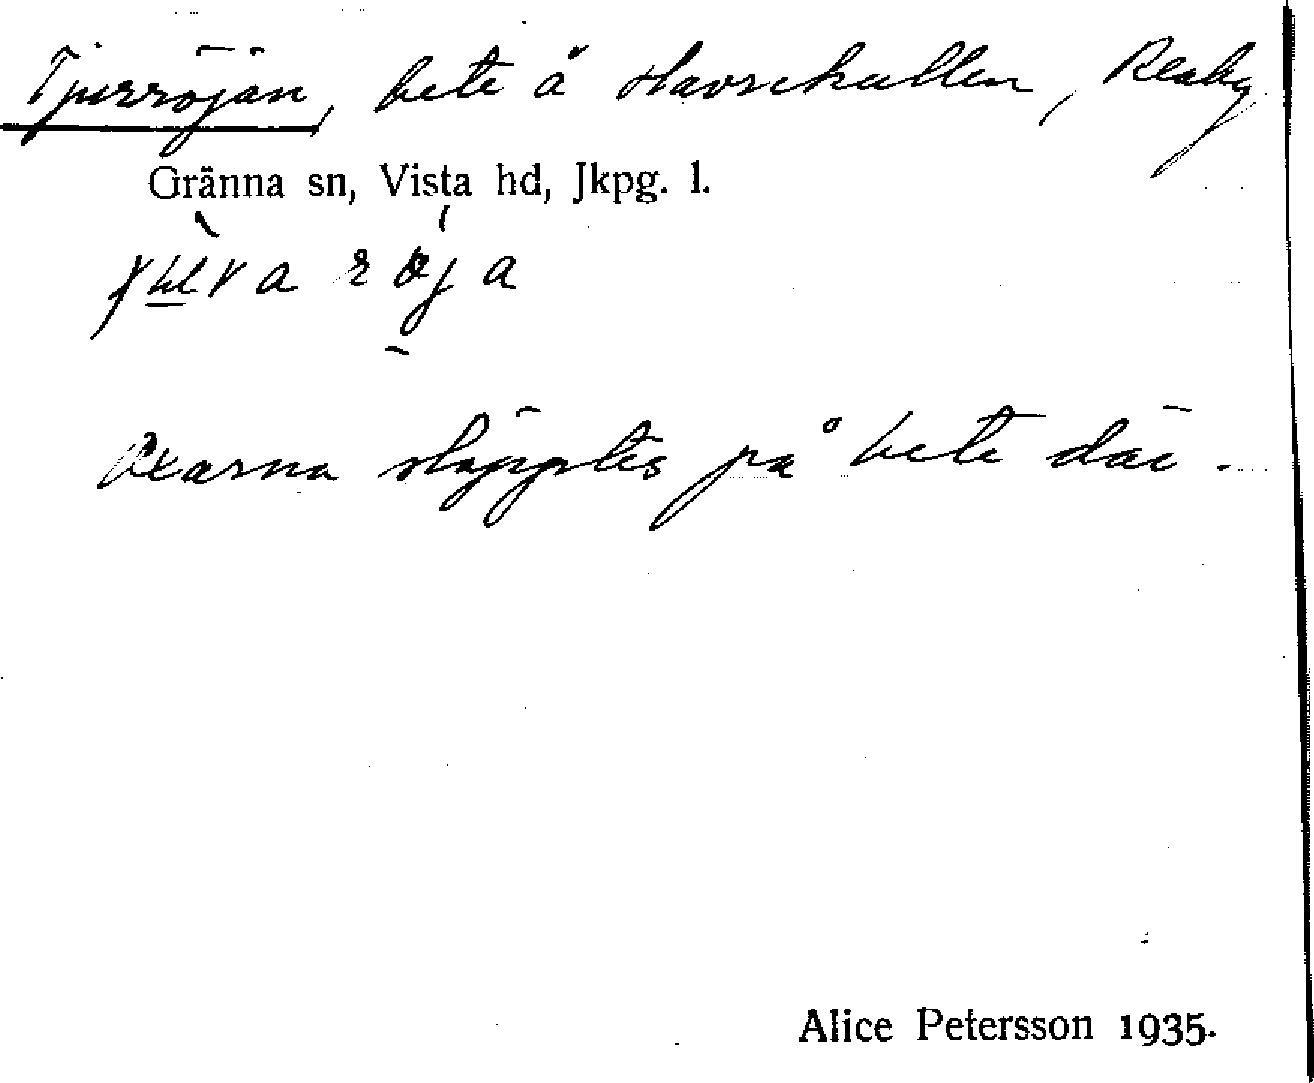 Tjurröjan, bete å Slavsekullen, Reaby
Gränna sn, Vista hd, Jkpg. l.
Oxarna släpptes på bete där.
Alice Petersson 1935.